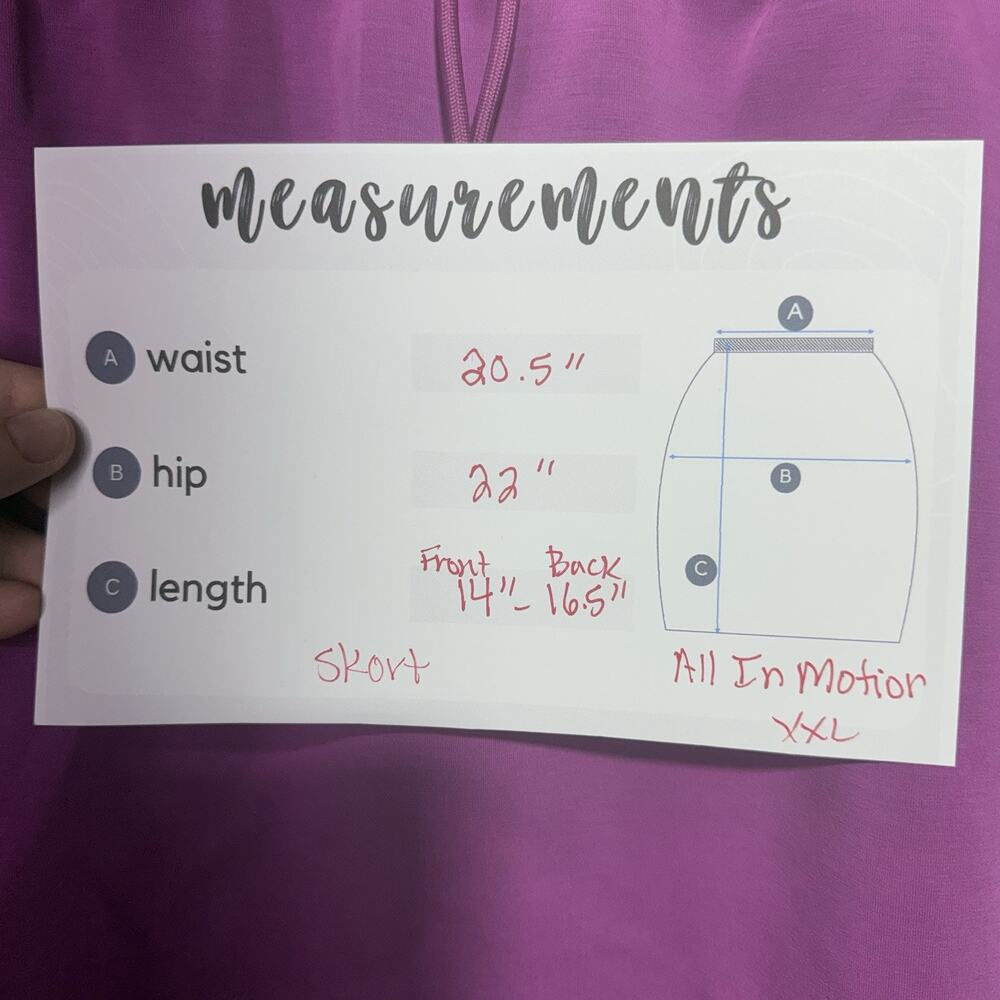 measurements
A waist 20.5"
B hip 22"
Front Back
C length 14" - 16.5"
Skort
A
B
C
All In Motion
XXL